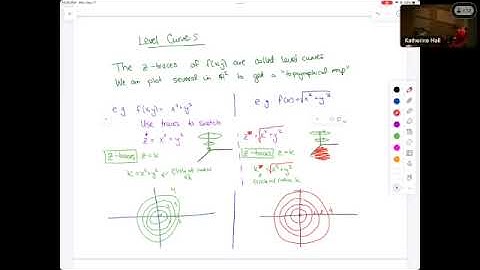 Level Curves
The z-traces of f(x,y) are called level curves
We can plot several in ℝ² to get a "topographical map"
e.g. f(x,y) = x²+y²
Use traces to sketch
z = x²+y²
z-traces z=k
k = x²+y² ← Circle of radius √k
e.g. f(x,y) = √x²+y²
z = √x²+y²
z-traces z=k
k = √x²+y²
Circle of radius k
Katherine Hall